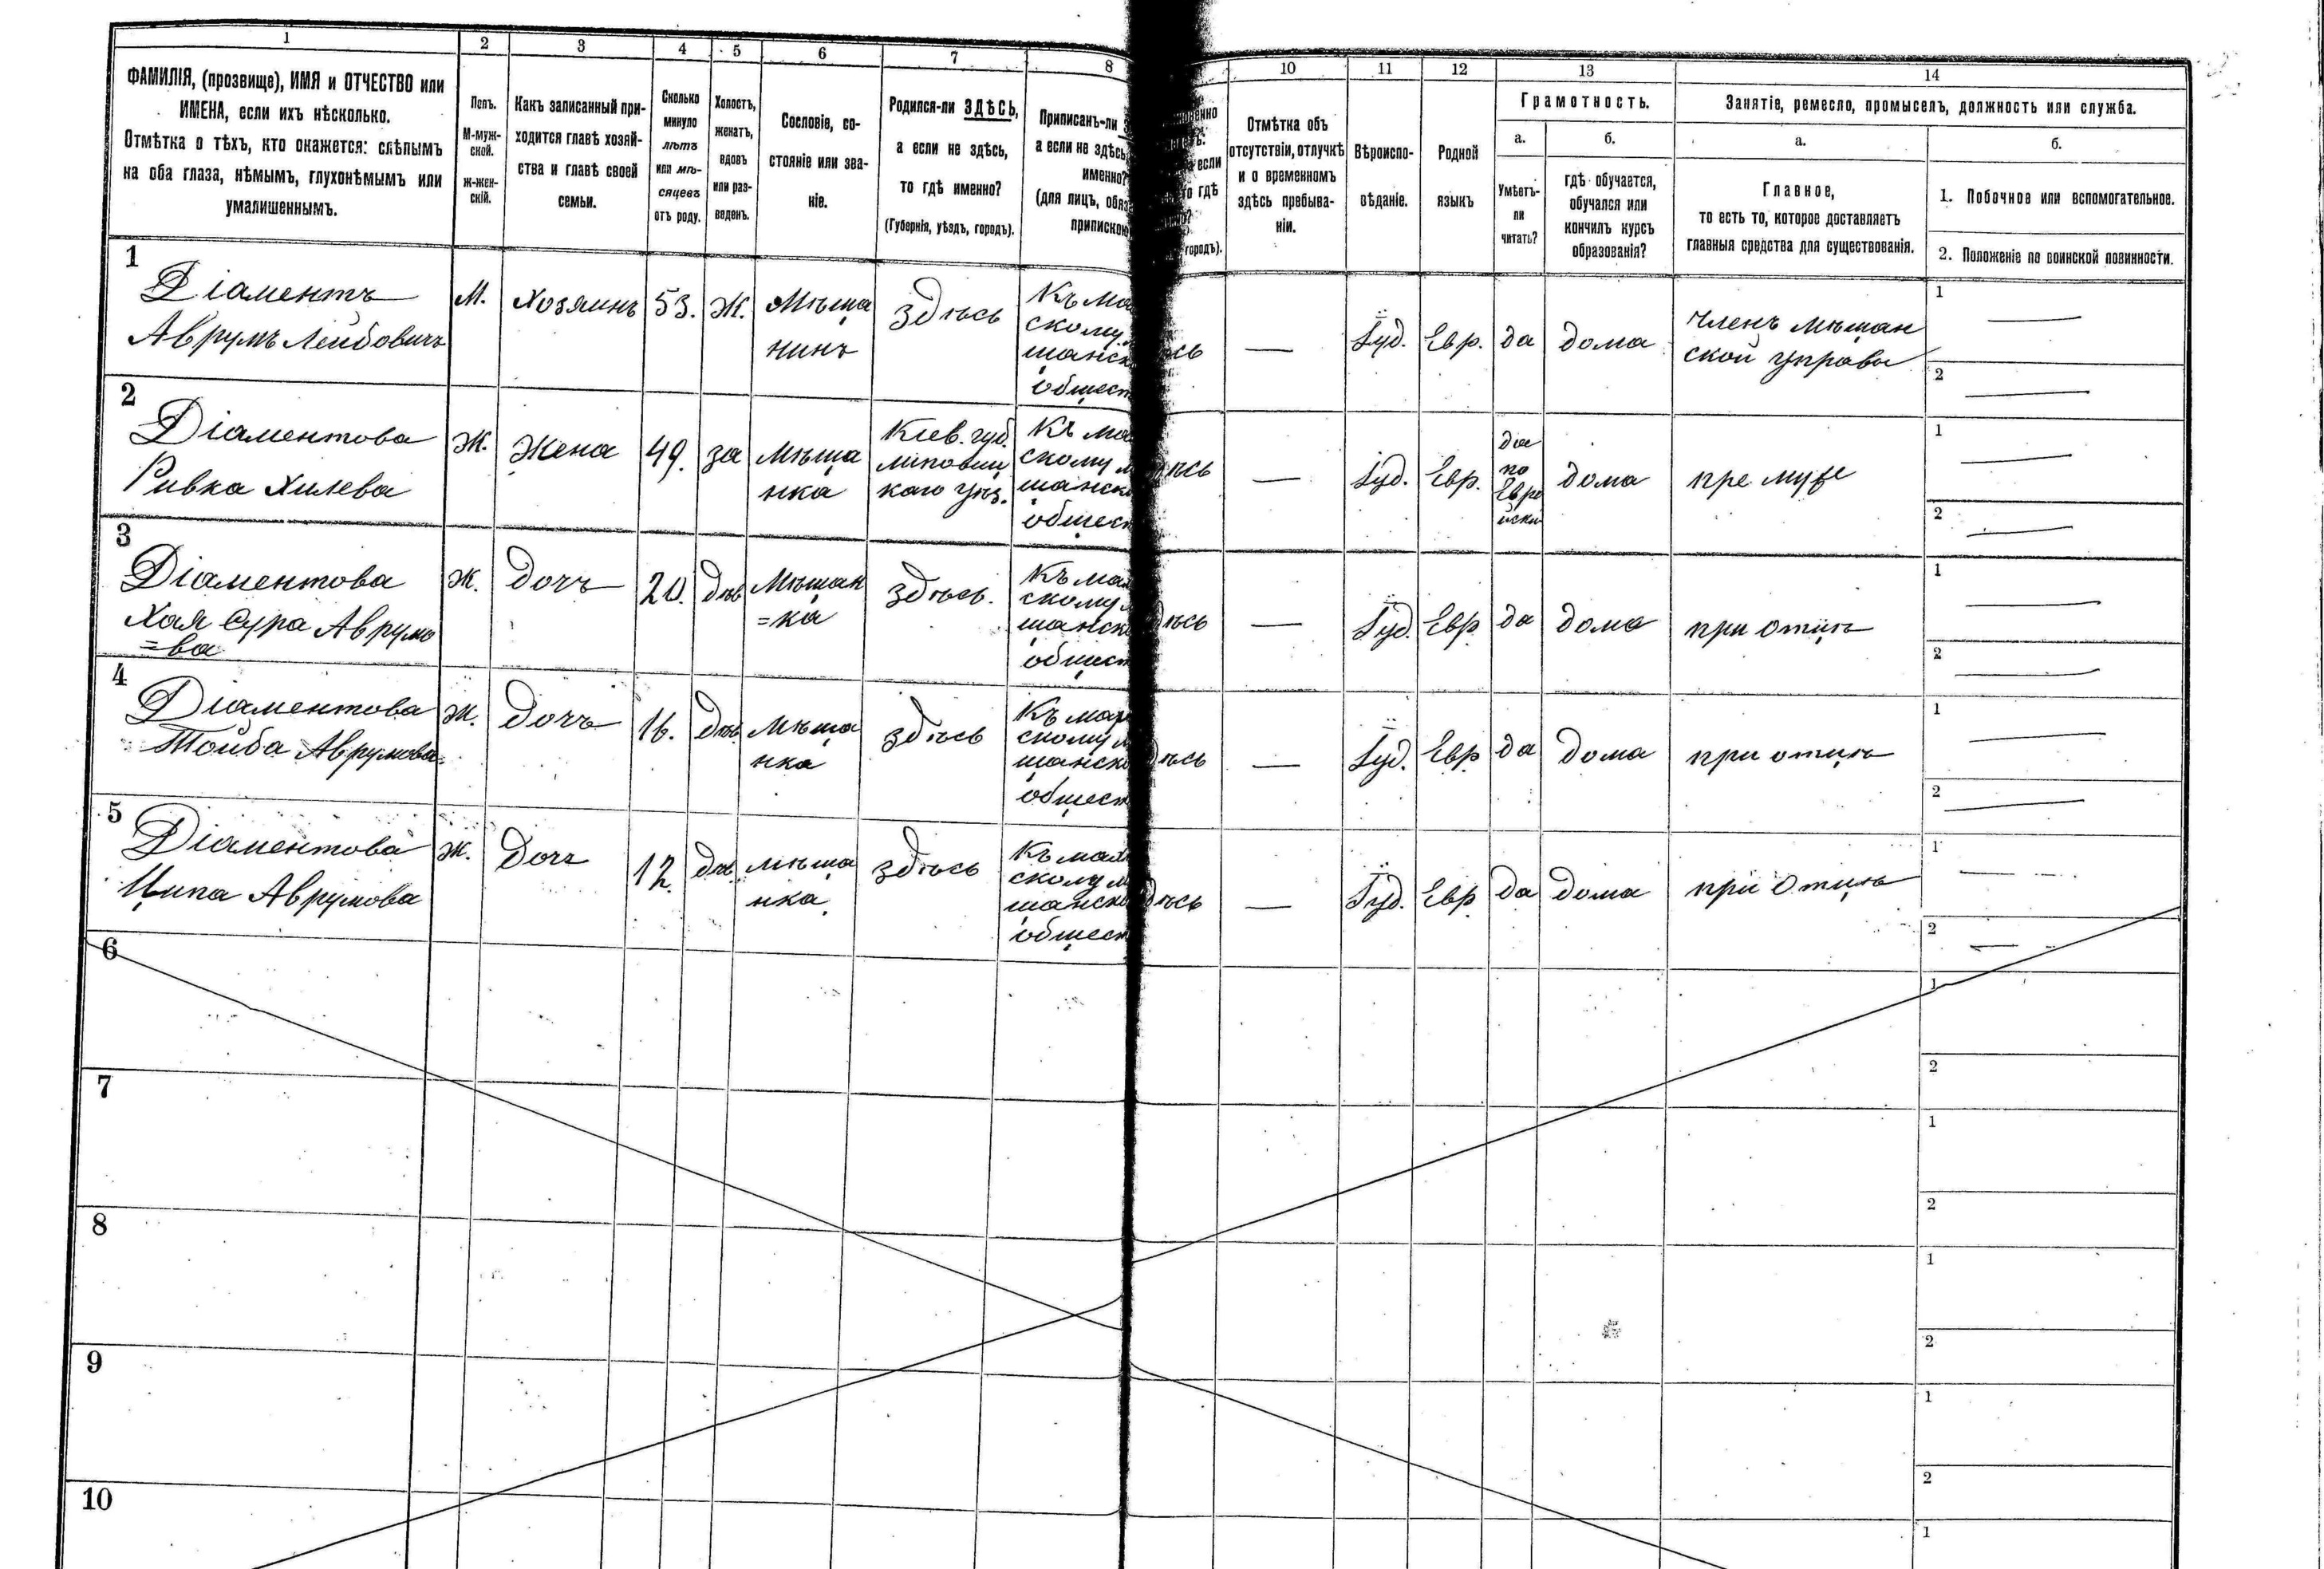 1 2 3 4 5 6 7 8 10 11 12 13 14
ФАМИЛІЯ, (прозвище), ИМЯ и ОТЧЕСТВО или
ИМЕНА, если ихъ нѣсколько.
Отмѣтка о тѣхъ, кто окажется: слѣпымъ
на оба глаза, нѣмымъ, глухонѣмымъ или
умалишеннымъ.
Полъ.
М-муж-
ской.
Ж-жен-
скій.
Какъ записанный при-
ходится главѣ хозяй-
ства и главѣ своей
семьи.
Сколько
минуло
лѣтъ
или мѣ-
сяцевъ
отъ роду.
Холостъ,
женатъ,
вдовъ
или раз-
веденъ.
Сословіе, со-
стояніе или зва-
ніе.
Родился-ли ЗДѢСЬ,
а если не здѣсь,
то гдѣ именно?
(Губернія, уѣздъ, городъ).
Приписанъ-ли
а если не здѣсь
именно?
(для лицъ, обяз
припискою
если
гдѣ
городъ).
Отмѣтка объ
отсутствіи, отлучкѣ
и о временномъ
здѣсь пребыва-
ніи.
Вѣроиспо-
вѣданіе.
Родной
языкъ
Грамотность.
а.
Умѣетъ-
ли
читать?
б.
гдѣ обучается,
обучался или
кончилъ курсъ
образованія?
Занятіе, ремесло, промыселъ, должность или служба.
а.
Главное,
то есть то, которое доставляетъ
главныя средства для существованія.
б.
1. Побочное или вспомогательное.
2. Положеніе по воинской повинности.
1
Діаментъ
Аврумъ Лейбовичъ
М.
Хозяинъ
53.
Ж.
Мѣща
нинъ
здѣсь
Къ ма
скому
щанск
общест
сь
—
Іуд.
Евр.
да
дома
Членъ мѣщан
ской управы
1 —
2 —
2
Діаментова
Ривка Хилева
Ж.
Жена
49.
за
Мѣща
нка
Кіев. губ.
Липовец
каго уѣз.
Къ ма
скому м
щанско
общест
ѣсь
—
Іуд.
Евр.
да
по
Евре
йски
дома
пре муже
1 —
2 —
3
Діаментова
Хая Сура Аврумо
=ва
Ж.
дочь
20.
дѣв
Мѣщан
=ка
здѣсь.
Къ ма
скому
щанск
общест
дѣсь
—
Іуд.
Евр
да
дома
при отцѣ
1 —
2 —
4
Діаментова
Тойба Аврумова
Ж.
дочь
16.
дѣв.
Мѣща
нка
здѣсь
Къ ма
скому м
щанско
общест
дѣсь
—
Іуд.
Евр
да
дома
при отцѣ
1 —
2 —
5
Діаментова
Ципа Аврумова
Ж.
дочь
12.
дѣв.
мѣща
нка
здѣсь
Къ ма
скому м
щанско
общест
дѣсь
—
Іуд.
Евр
да
дома
при Отцѣ
1 —
2 —
6
1
2
7
1
2
8
1
2
9
1
2
10
1